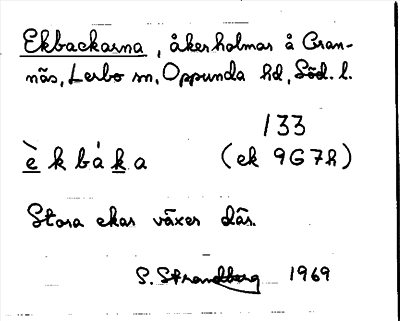 Ekbackarna, åkerholmar å Gran-
näs, Lerbo sn, Oppunda hd, Söd. l.
133
è k b á k a (ek 9G7h)
Stora ekar växer där.
S. Strandberg 1969